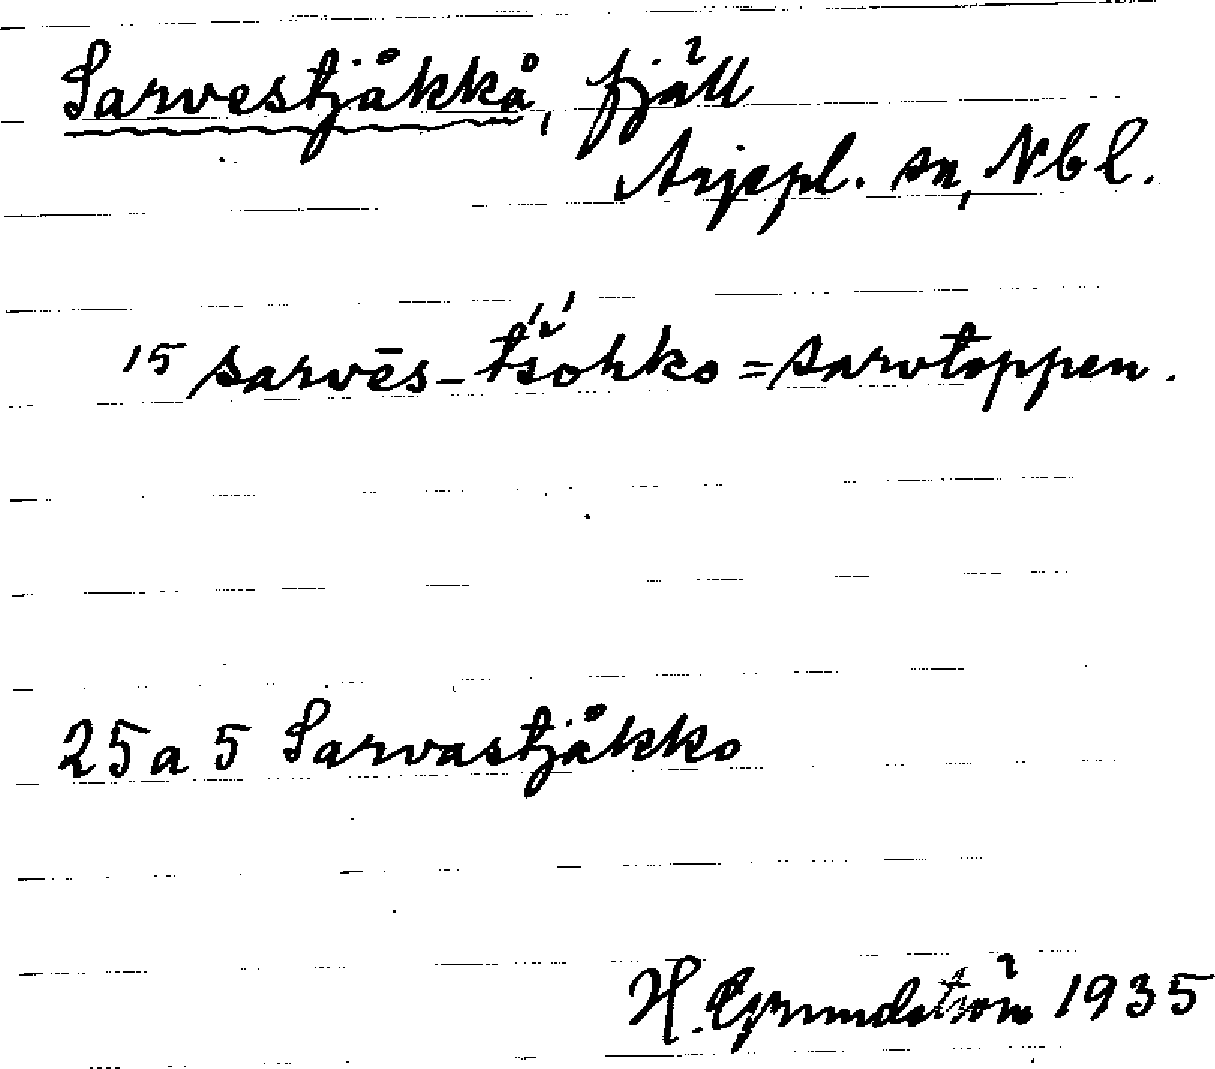 Sarvestjåkkå, fjäll
Arjepl. sn, Nbl.
15 sarvēs-tšohko = sarvtoppen.
25 a 5 Sarvastjåkko
H. Grundström 1935